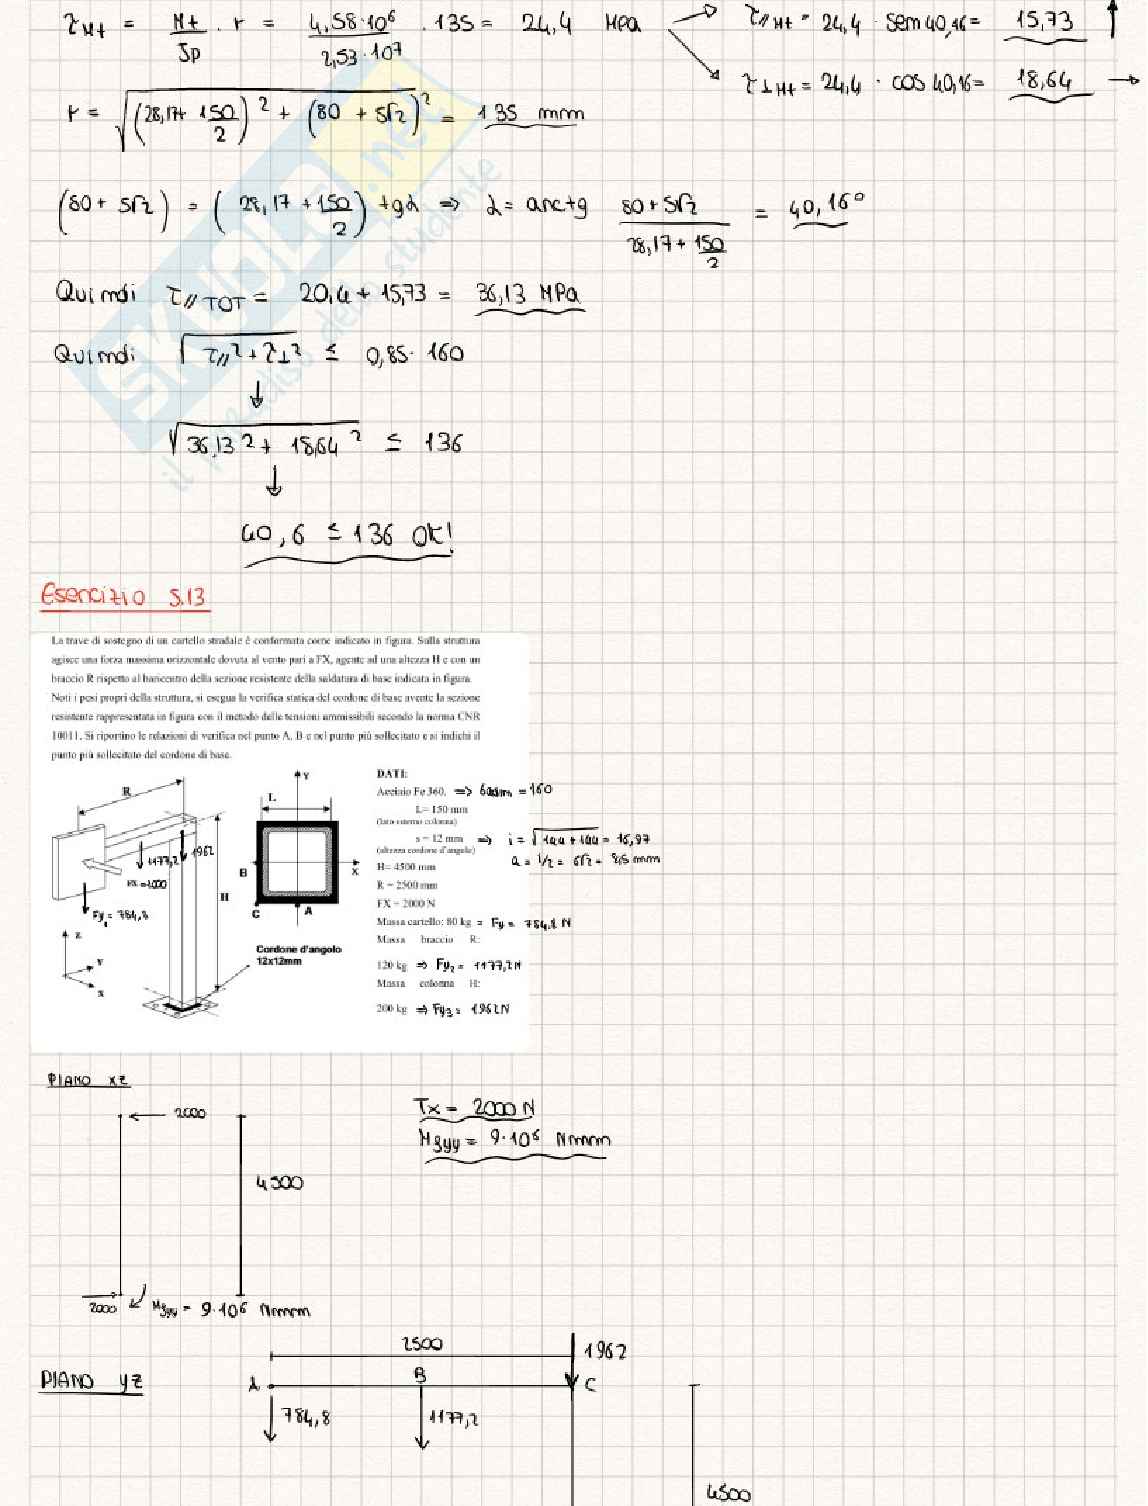 τMt = Mt/Jp · r = 4,58·10⁶/2,53·10⁷ · 135 = 24,4 MPa
τ// Mt = 24,4 · sen 40,16 = 15,73 ↑
τ⊥ Mt = 24,4 · cos 40,16 = 18,64 →
r = √(28,17 + 150/2)² + (80 + 5√2)² = 135 mm
(80 + 5√2) = (28,17 + 150/2) tgα ⇒ α = arctg (80 + 5√2)/(28,17 + 150/2) = 40,16°
Quindi τ// TOT = 20,4 + 15,73 = 36,13 MPa
Quindi √τ//² + τ⊥² ≤ 0,85 · 160
↓
√36,13² + 18,64² ≤ 136
↓
40,6 ≤ 136 OK!
SKUOLA.net
il paradiso dello studente
Esercizio 5.13
La trave di sostegno di un cartello stradale è conformata come indicato in figura. Sulla struttura
agisce una forza massima orizzontale dovuta al vento pari a FX, agente ad una altezza H e con un
braccio R rispetto al baricentro della sezione resistente della saldatura di base indicata in figura.
Noti i pesi propri della struttura, si esegua la verifica statica del cordone di base avente la sezione
resistente rappresentata in figura con il metodo delle tensioni ammissibili secondo la norma CNR
10011. Si riportino le relazioni di verifica nel punto A, B e nel punto più sollecitato e si indichi il
punto più sollecitato del cordone di base.
R
1177,2
1962
FX = 2000
Fy₁ = 784,8
H
Z
Y
X
Y
L
B
X
C
A
Cordone d'angolo
12x12mm
DATI:
Acciaio Fe 360. ⇒ σadm = 160
L= 150 mm
(lato esterno colonna)
s = 12 mm ⇒ i = √144 + 144 = 16,97
(altezza cordone d'angolo) a = i/2 = 6√2 = 8,5 mm
H= 4500 mm
R = 2500 mm
FX = 2000 N
Massa cartello: 80 kg = Fy = 784,8 N
Massa braccio R:
120 kg ⇒ Fy₂ = 1177,2 N
Massa colonna H:
200 kg ⇒ Fy₃ = 1962 N
PIANO xz
2000
4500
2000
Mfyy = 9·10⁶ Nmm
Tx = 2000 N
Mfyy = 9·10⁶ Nmm
PIANO yz
2500
1962
A
B
C
784,8
1177,2
4500